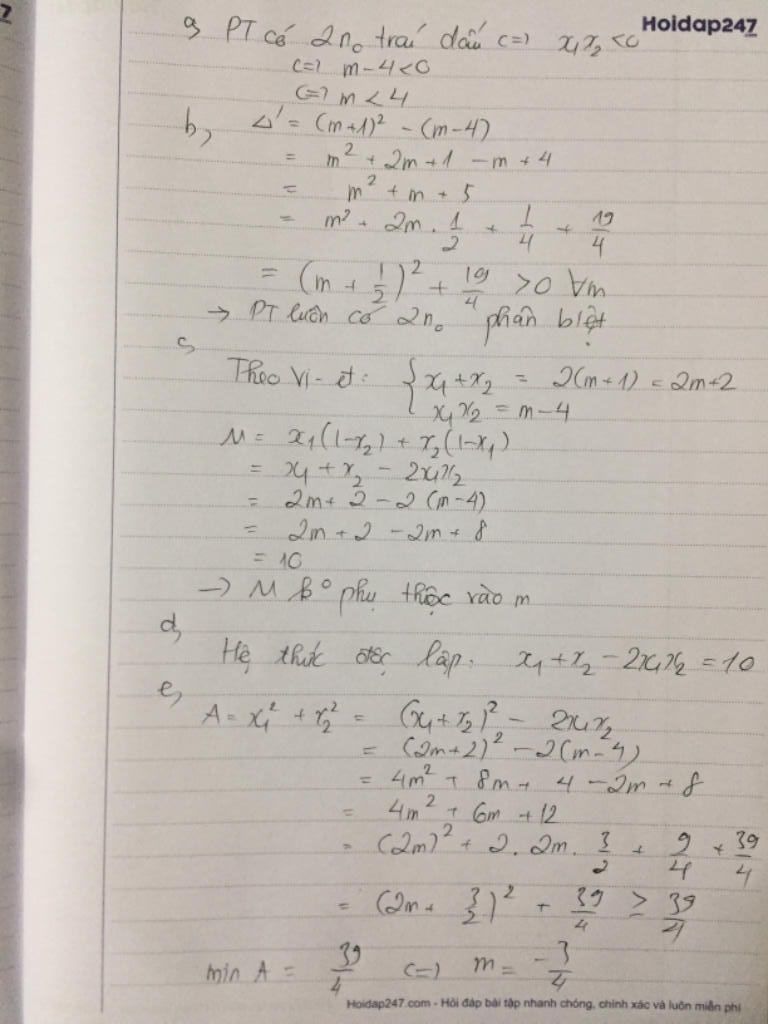 7
Hoidap247
a, PT có 2n₀ trái dấu <=> x₁x₂ <0
<=> m-4<0
<=> m < 4
b, Δ' = (m+1)² - (m-4)
= m² + 2m+1 -m+4
= m² + m + 5
= m² + 2m . 1/2 + 1/4 + 19/4
= (m + 1/2)² + 19/4 >0 ∀m
-> PT luôn có 2n₀ phân biệt
c,
Theo Vi-et: { x₁+x₂ = 2(m+1) = 2m+2
x₁x₂ = m-4
M = x₁(1-x₂) + x₂(1-x₁)
= x₁ + x₂ - 2x₁x₂
= 2m+ 2 -2 (m-4)
= 2m + 2 - 2m + 8
= 10
-> M k° phụ thộc vào m
d,
Hệ thức độc lập. x₁+x₂ -2x₁x₂ =10
e,
A= x₁² + x₂² = (x₁+x₂)² - 2x₁x₂
= (2m+2)² -2(m-4)
= 4m² + 8m+ 4 -2m + 8
= 4m² + 6m +12
= (2m)² + 2. 2m. 3/2 + 9/4 + 39/4
= (2m+ 3/2)² + 39/4 ≥ 39/4
min A = 39/4 <=> m = -3/4
Hoidap247.com - Hỏi đáp bài tập nhanh chóng, chính xác và luôn miễn phí